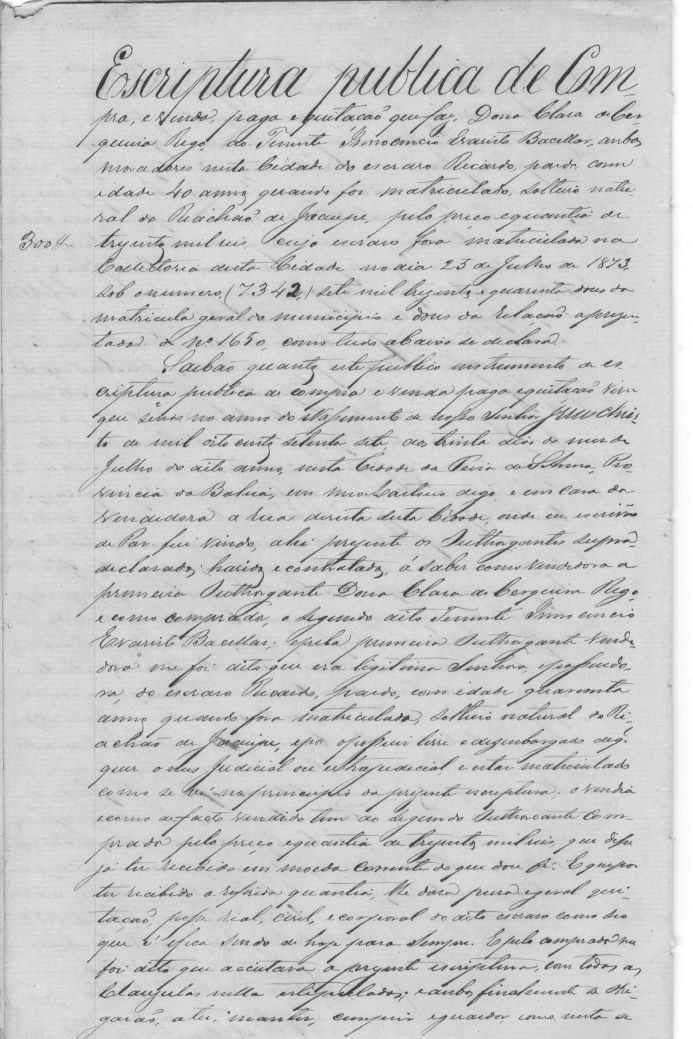 Escriptura publica de Com-
pra, e venda, paga e quitação que faz, Dona Clara de Cer-
queira Rego ao Tenente Innocencio Evaristo Bacellar, ambos
moradores nesta Cidade do escravo Ricardo, pardo, com
idade 40 annos quando foi matriculado, solteiro natu-
ral do Riachão de Jacuipe, pelo preço e quantia de
300$ trezentos mil reis, cujo escravo fora matriculado na
Collectoria desta Cidade no dia 25 de Julho de 1873,
sob o numero (7342,) sete mil trezentos e quarenta dous da
matricula geral do municipio e dous da relação aprezen-
tada de nº 1650, como tudo abaixo se declara.
Saibão quantos este publico instrumento de es-
criptura publica de compra e venda paga e quitação virem
que sendo no anno do Nascimento de Nosso Senhor Jesus Chris-
to de mil oito centos setenta sete aos trinta dias do mez de
Julho do dito anno, nesta Cidade da Feira de Sant'Anna, Pro-
vincia da Bahia, em meo Cartorio digo, e em casa da
vendedora a rua direita desta Cidade, onde eu escrivão
de Paz fui vindo, ahi prezente os Outhorgantes supra
declarados; havidos e contratados, á saber como vendedora a
primeira Outhorgante Dona Clara de Cerqueira Rego
e como comprador, o segundo dito Tenente Innocencio
Evaristo Bacellar; e pela primeira Outhorgante vende-
dora me foi dito que era legitima Senhora, e possuido-
ra, do escravo Ricardo, pardo, com idade quarenta
annos quando fora matriculado, solteiro natural do Ri-
achão de Jacuipe, e que o possuir livre e dezembargado de qual-
quer onus Judicial ou extrajudicial e estar matriculado
como se vê no principio da prezente escriptura. o vendia
e como de facto vendido tem ao segundo Outhorgante Com-
prador pelo preço e quantia de trezentos mil reis, que disse
já ter recebido em moeda corrente do que dou fé. E que por
ter recebido a referida quantia, lhe dava pura e geral qui-
tação, posse real, civil, e corporal do dito escravo como seo
que é e fica sendo de hoje para sempre. E pelo comprador me
foi dito que acceitava a prezente escriptura, com todas as
Clausulas nella estipuladas; e ambos finalmente se obri-
garão, a ter, manter, cumprir e guardar como nesta se